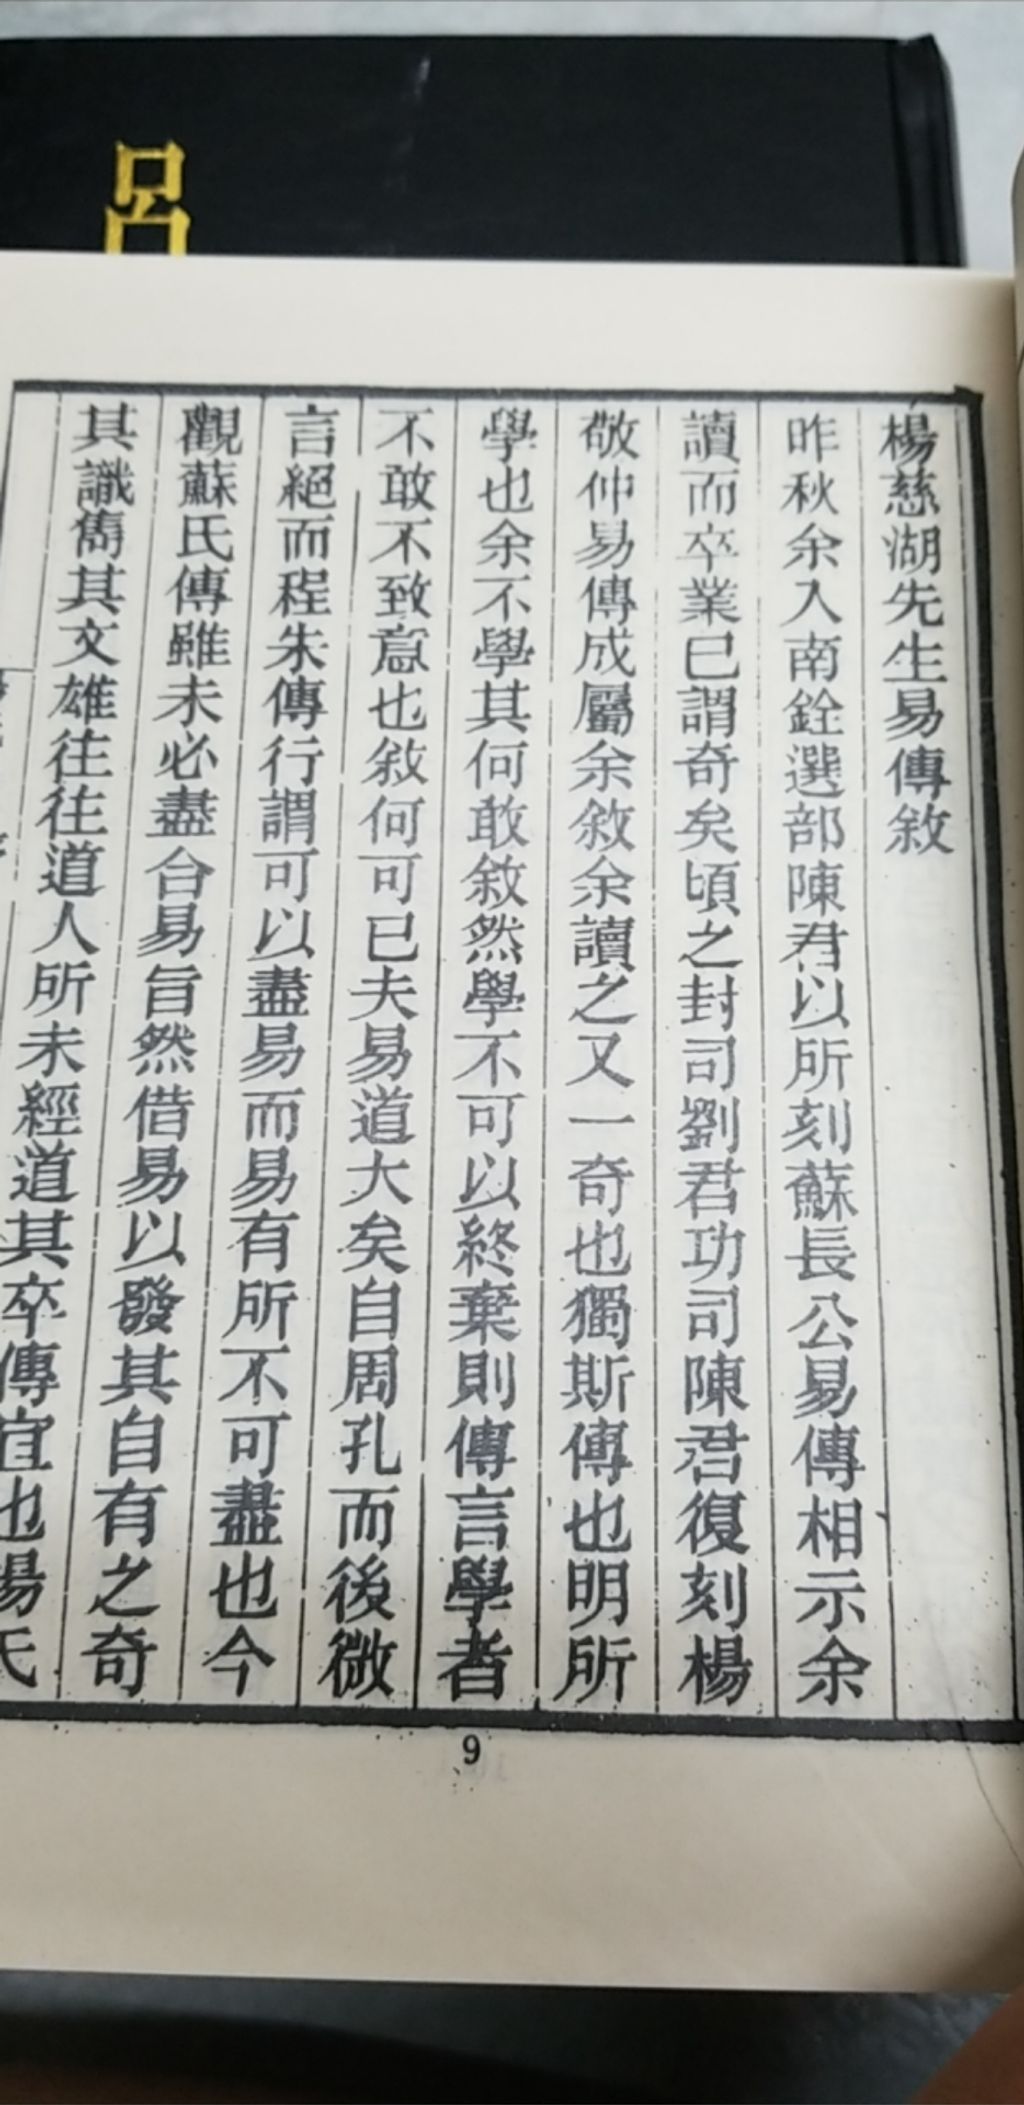 呂
楊慈湖先生易傳敘
昨秋余入南銓選部陳君以所刻蘇長公易傳相示余
讀而卒業已謂奇矣頃之封司劉君功司陳君復刻楊
敬仲易傳成屬余敘余讀之又一奇也獨斯傳也明所
學也余不學其何敢敘然學不可以終棄則傳言學者
不敢不致意也敘何可已夫易道大矣自周孔而後微
言絕而程朱傳行謂可以盡易而易有所不可盡也今
觀蘇氏傳雖未必盡合易旨然借易以發其自有之奇
其識雋其文雄往往道人所未經道其卒傳宜也楊氏
9